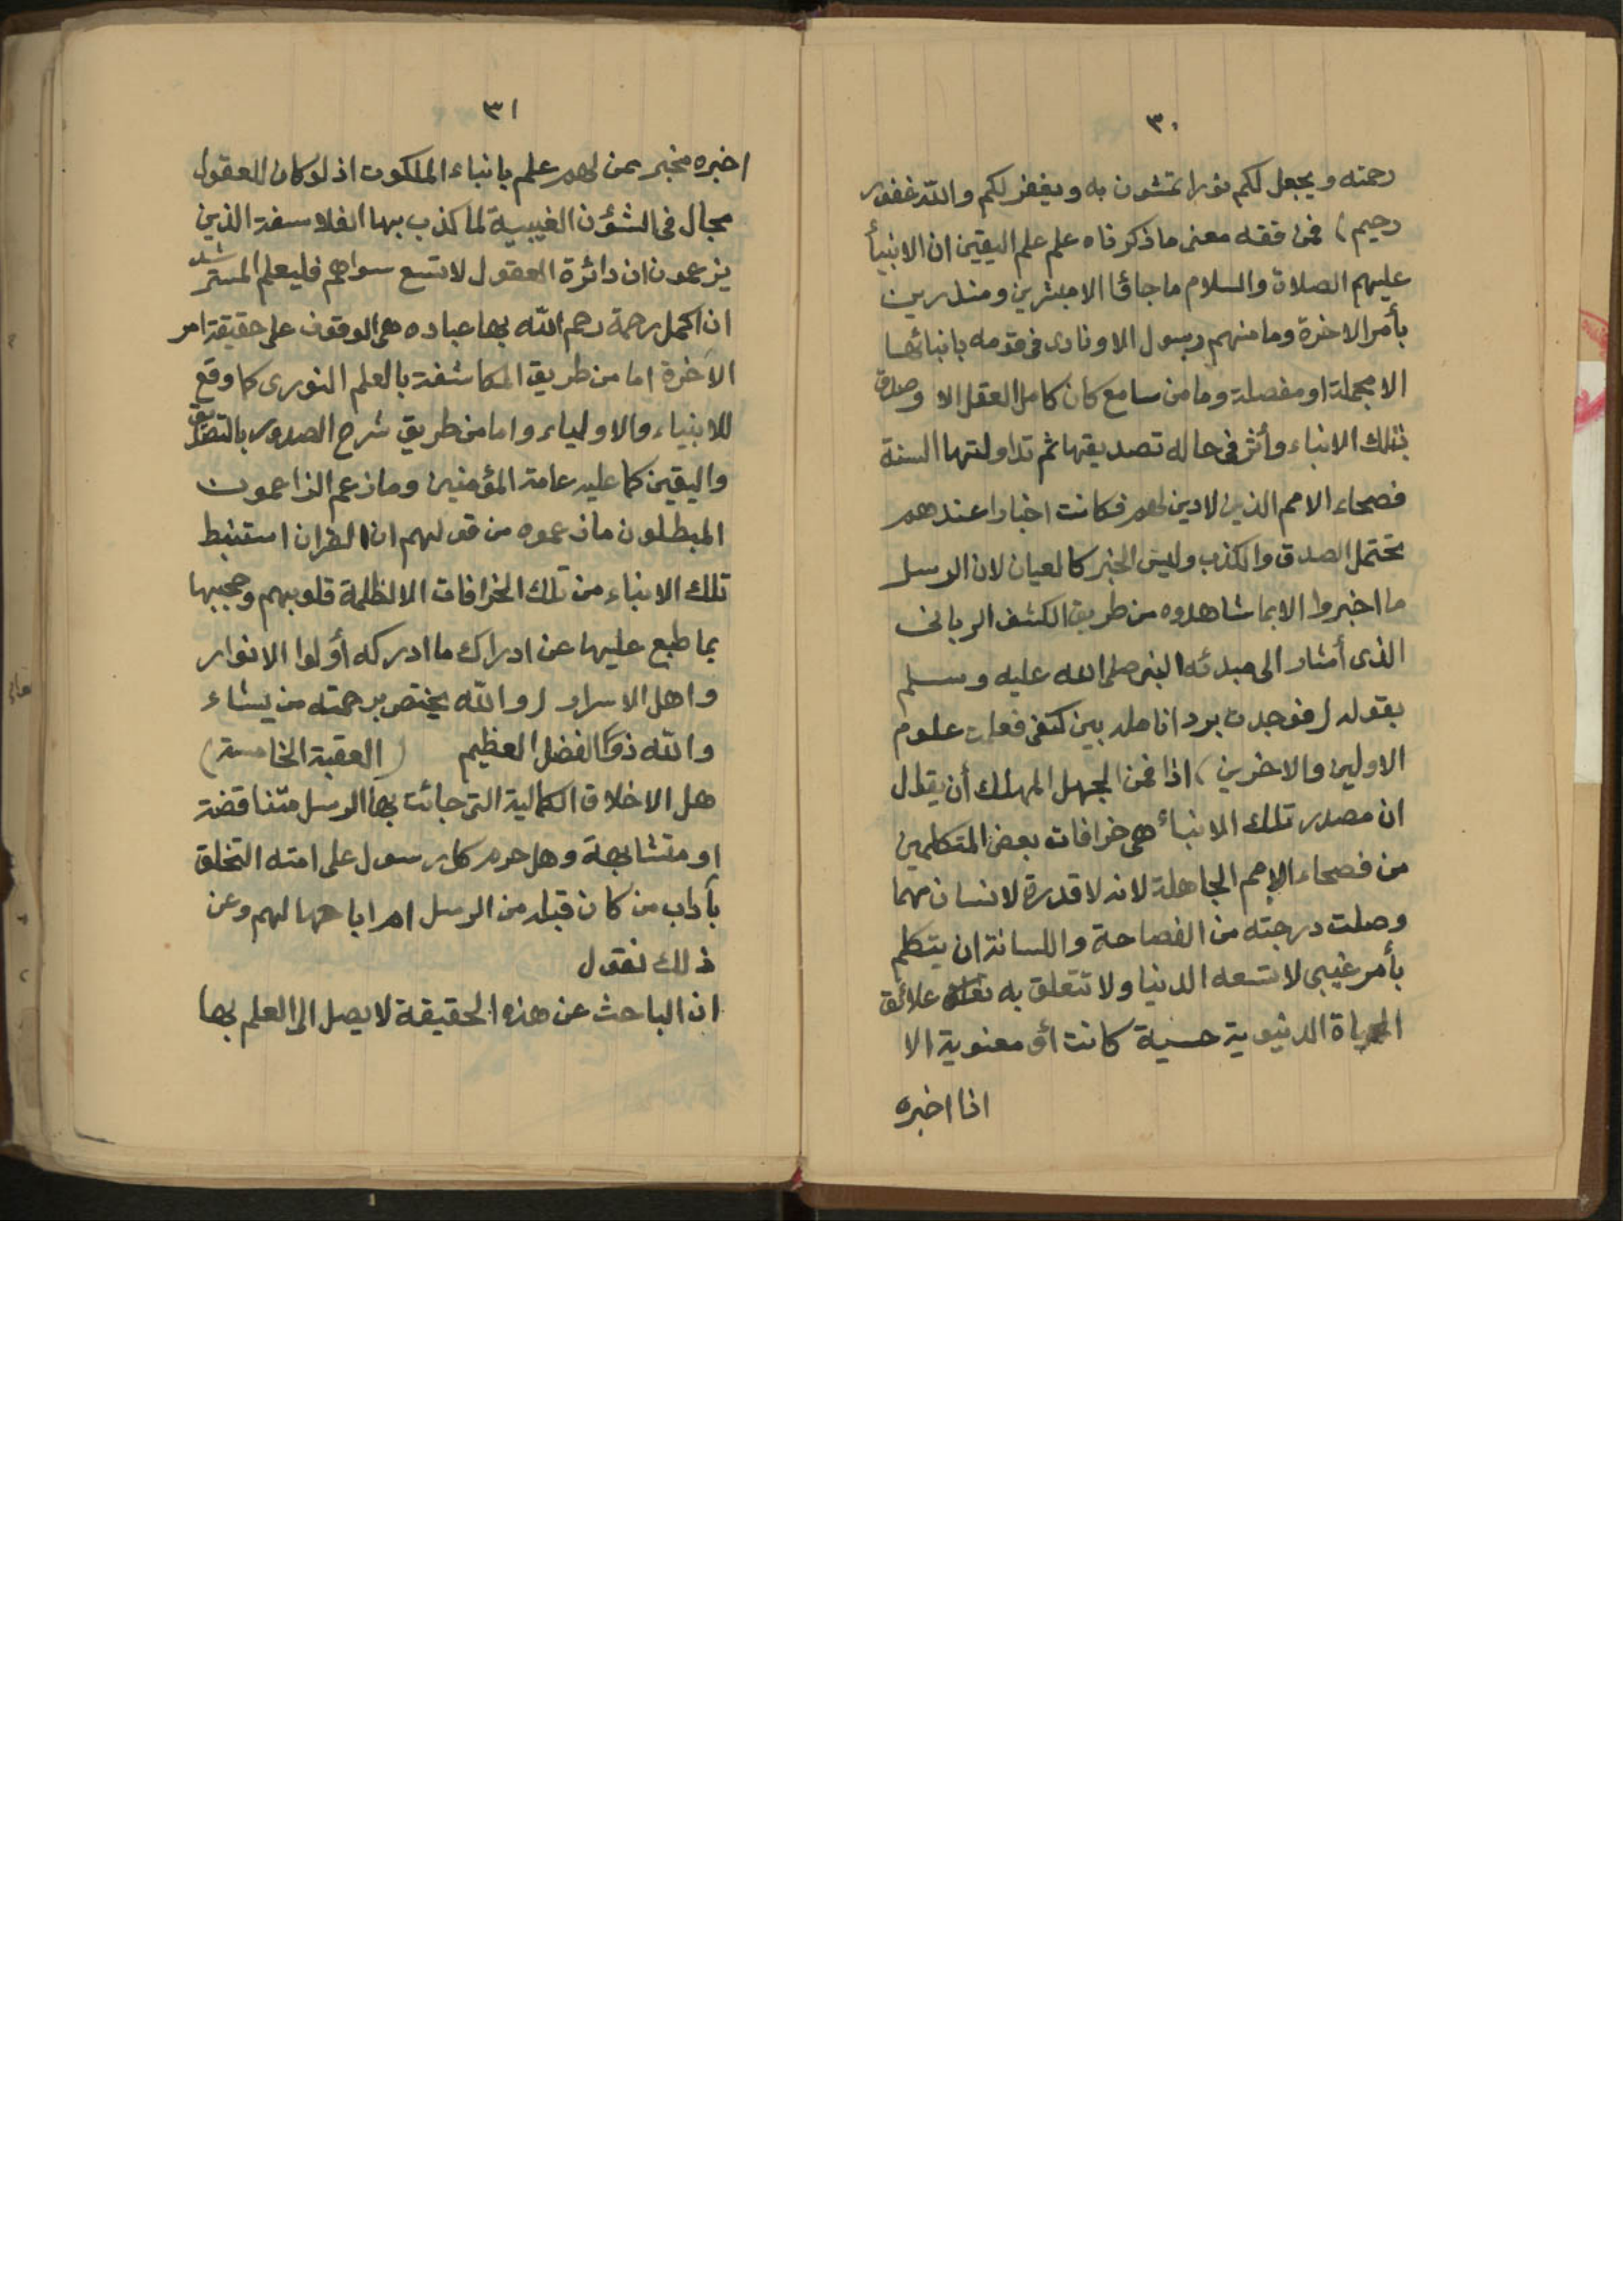 ٣٠
رحمته ويجعل لكم نورا تمشون به ويغفر لكم والله غفور
رحيم) فمن فقه معنى ما ذكرناه علم علم اليقين ان الانبيأ
عليهم الصلاة والسلام ما جاؤا الا مبشرين ومنذرين
بأمر الاخرة وما منهم رسول الا ونادى فى قومه بانبائها
الا مجملة او مفصلة وما من سامع كان كامل العقل الا وصدق
بتلك الانباء وأثر فى حاله تصديقها ثم تداولتها السنة
فصحاء الامم الذين لا دين لهم فكانت اخبارا عندهم
تحتمل الصدق والكذب وليس الخبر كالعيان لان الرسل
ما اخبروا الا بما شاهدوه من طريق الكشف الربانى
الذى أشار الى مبدئه النبى صلى الله عليه وسلم
بقوله (فوجدت برد انامله بين كتفى فعلمت علوم
الاولين والاخرين) اذا فمن الجهل المهلك أن يقال
ان مصدر تلك الانبأ هى خرافات بعض المتكلمين
من فصحاء الامم الجاهلة لانه لا قدرة لانسان مهما
وصلت درجته من الفصاحة واللسانة ان يتكلم
بأمر غيبى لا تسعه الدنيا ولا تتعلق به علائق
الحياة الدنيوية حسية كانت أو معنوية الا
اذا اخبره
٣١
اخبره مخبر بمن لهم علم بانباء الملكوت اذ لو كان للعقول
مجال فى الشؤن الغيبية لما كذب بها الفلاسفة الذين
يزعمون ان دائرة العقول لا تسع سواهم فليعلم المسترشد
ان اكمل رحمة رحم الله بها عباده هى الوقوف على حقيقة امر
الآخرة اما من طريق المكاشفة بالعلم النورى كما وقع
للانبياء والاولياء واما من طريق شرح الصدور بالتصديق
واليقين كما عليه عامة المؤمنين وما زعم الزاعمون
المبطلون ما زعموه من قولهم ان القران استنبط
تلك الانباء من تلك الخرافات الا لظلمة قلوبهم وحجبها
بما طبع عليها عن ادراك ما ادركه أولوا الانوار
واهل الاسرار (والله يختص برحمته من يشاء
والله ذو الفضل العظيم (العقبة الخامسة)
هل الاخلاق الكمالية التى جائت بها الرسل متناقضة
او متشابهة وهل حرم كل رسول على امته التخلق
بآداب من كان قبله من الرسل ام اباحها لهم وعن
ذلك نقول
ان الباحث عن هذه الحقيقة لا يصل الى العلم بها